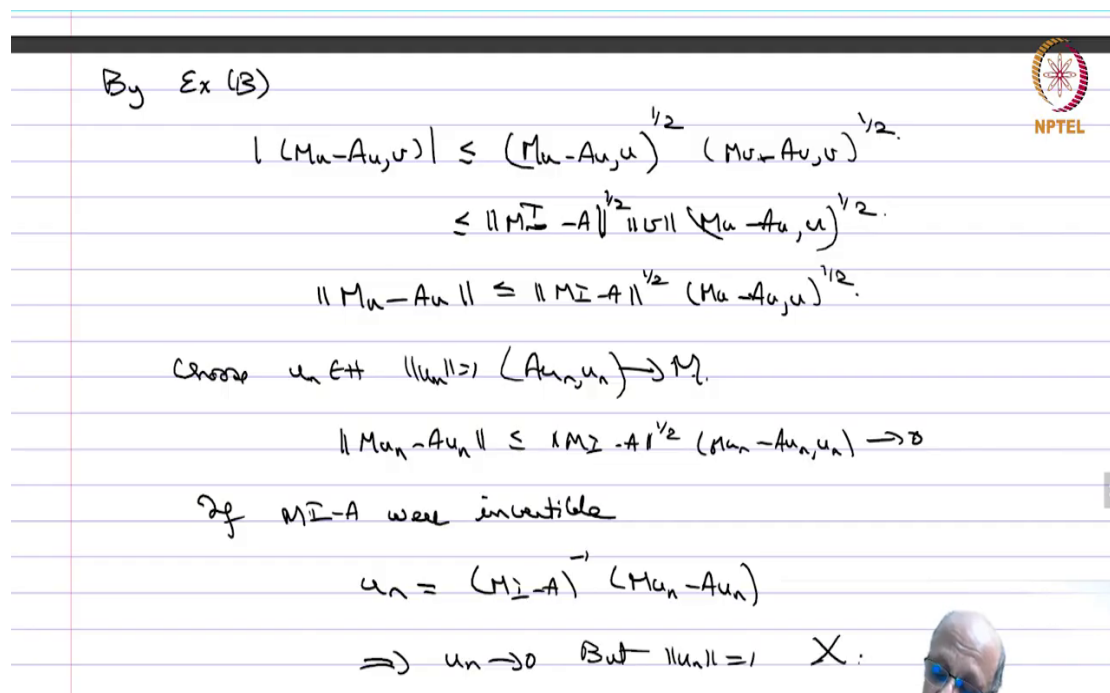 By Ex (B)
NPTEL
|(Mu-Au,v)| ≤ (Mu-Au,u)^{1/2} (Mv-Av,v)^{1/2}.
≤ ||MI-A||^{1/2} ||v|| (Mu-Au,u)^{1/2}.
||Mu-Au|| ≤ ||MI-A||^{1/2} (Mu-Au,u)^{1/2}.
Choose u_n ∈ H ||u_n||=1 (Au_n,u_n) → M.
||Mu_n-Au_n|| ≤ ||MI-A||^{1/2} (Mu_n-Au_n,u_n) → 0
If MI-A were invertible
u_n = (MI-A)^{-1} (Mu_n-Au_n)
⇒ u_n → 0 But ||u_n||=1 X.